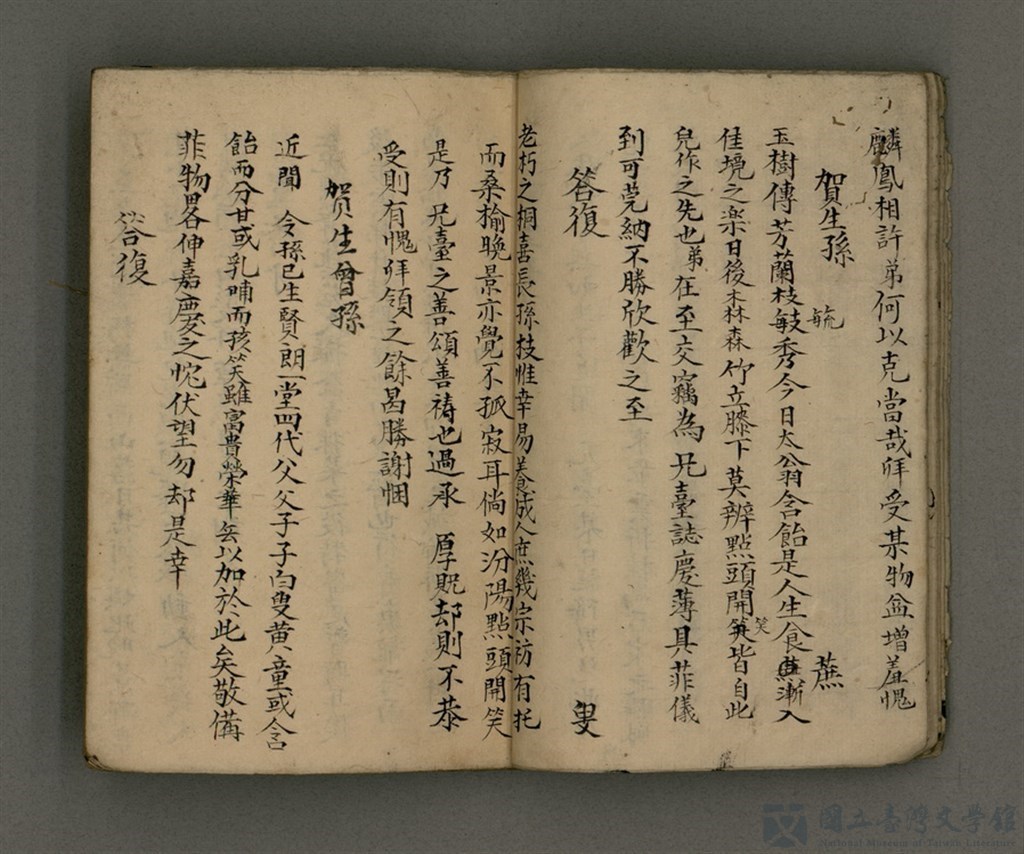 麟鳳相許弟何以克當哉拜受某物益增羞愧
賀生孫
毓
蕉
玉樹傳芳蘭枝敏秀今日太翁含飴是人生食蕉漸入
佳境之楽日後森森竹立膝下莫辨點頭開笑皆自此
笑
兒作之先也弟在至交竊為兄臺誌慶薄具菲儀
到可莞納不勝欣歡之至
答復
叟
老朽之桐喜長孫枝惟幸易養成人庶幾宗祊有托
而桑榆晚景亦覺不孤寂耳倘如汾陽點頭開笑
是乃 兄臺之善頌善祷也過承 厚貺却則不恭
受則有愧拜領之餘曷勝謝悃
賀生曾孫
近聞 令孫已生賢郎一堂四代父父子子白叟黄童或含
飴而分甘或乳哺而孩笑雖富貴榮華無以加於此矣敬備
菲物畧伸嘉慶之忱伏望勿却是幸
答復
國立臺灣文學館
National Museum of Taiwan Literature